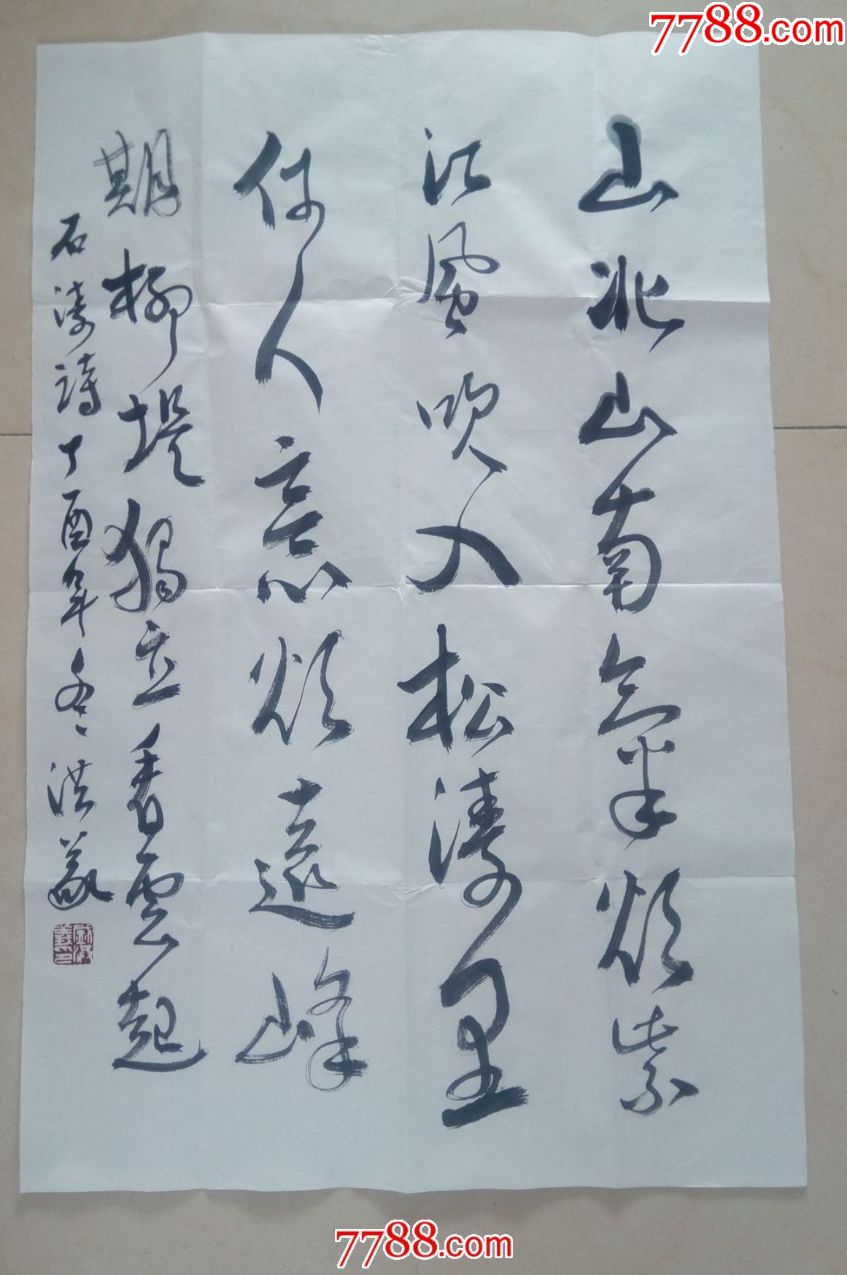 7788.com
山北山南氣欲紫
江風吹入松濤里
何人忘欲遠峰
期柳堤獨立看雲起
石濤詩丁酉年冬洪義
7788.com